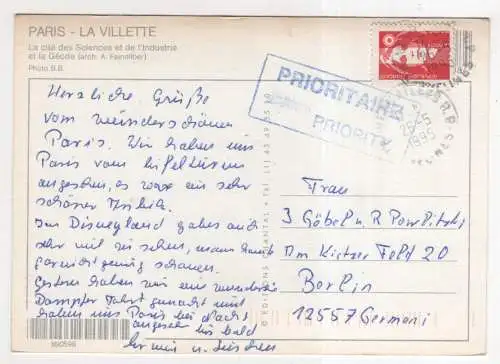 PARIS - LA VILLETTE
La cité des Sciences et de l'Industrie
et la Géode (arch. A. Fainsilber)
Photo B.B.
Herzliche Grüße
vom wunderschönen
Paris. Wir haben uns
Paris vom Eifelturm
angesehen, es war ein sehr
schöner Anblick.
Im Disneyland gabes auch
sehr viel zu sehen, man kann
garnicht genug schauen.
Gestern haben wir eine wunderschöne
Dampferfahrt gemacht und
haben uns Paris bei Nacht
angesehen bis bald
990598
PRIORITAIRE
PRIORITY
26-5
1995
Frau
J Göbel u. R
Am Kietzer Feld 20
Berlin
12557 Germeni